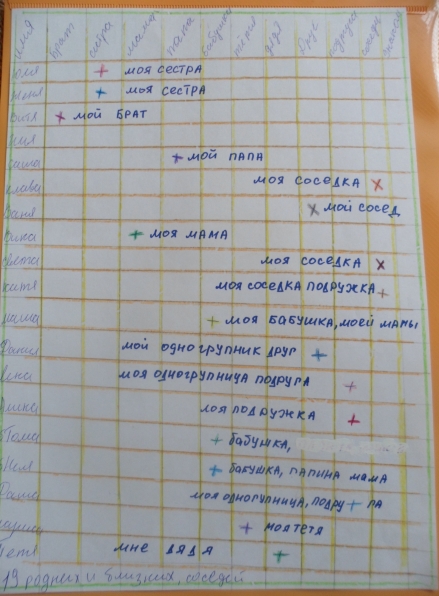 имя брат сестра мама папа бабушка тётя дядя друг подруга соседи
моя сестра
моя сестра
Витя мой БРАТ
мой папа
моя соседка
слава
Ваня мой сосед
моя мама
света моя соседка
катя моя соседка подружка
маша моя бабушка, моей мамы
Данил мой одногрупник друг
моя одногрупница подруга
моя подружка
Тома бабушка,
Неля бабушка, папина мама
моя одногупница, подру га
моя тетя
Петя мне дядя
19 родных и близких, соседей